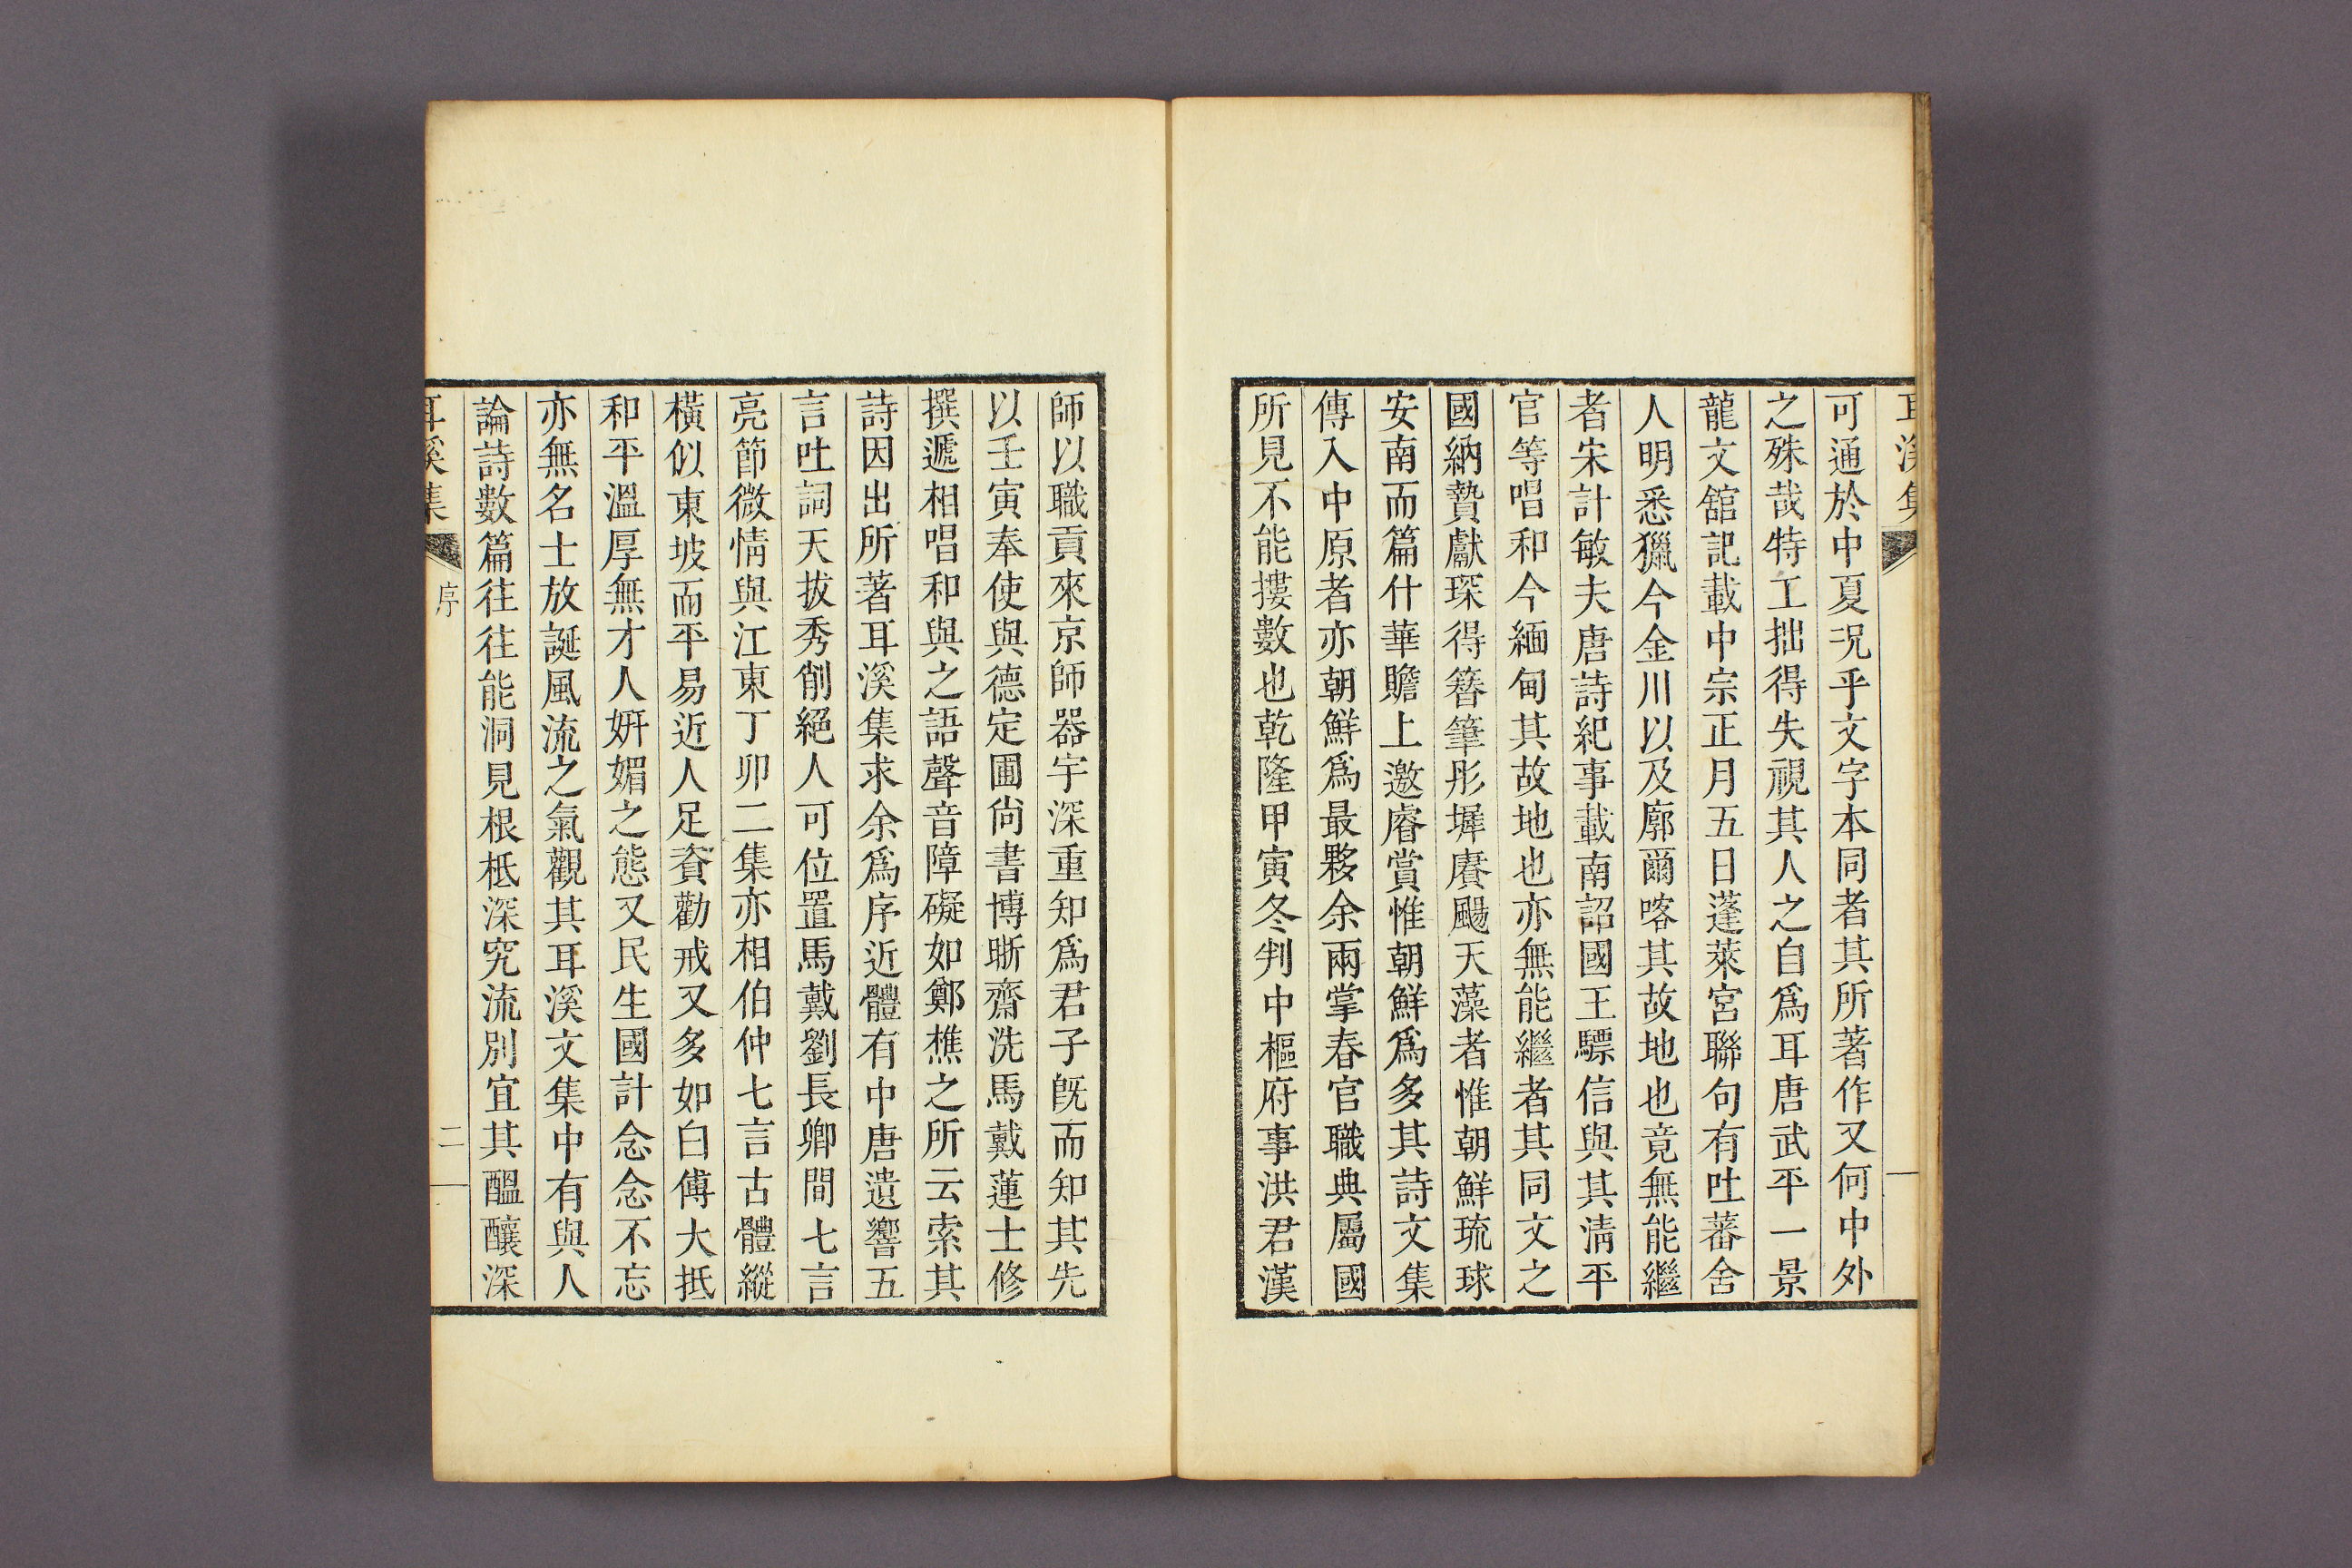 耳溪集
可通於中夏况乎文字本同者其所著作又何中外
之殊哉特工拙得失視其人之自爲耳唐武平一景
龍文舘記載中宗正月五日蓬萊宮聯句有吐蕃舍
人明悉獵今金川以及廓爾喀其故地也竟無能繼
者宋計敏夫唐詩紀事載南詔國王驃信與其淸平
官等唱和今緬甸其故地也亦無能繼者其同文之
國納贄獻琛得簪筆彤墀賡颺天藻者惟朝鮮琉球
安南而篇什華贍上邀睿賞惟朝鮮爲多其詩文集
傳入中原者亦朝鮮爲最夥余兩掌春官職典屬國
所見不能摟數也乾隆甲寅冬判中樞府事洪君漢
師以職貢來京師器宇深重知爲君子旣而知其先
以壬寅奉使與德定圃尙書博晰齋洗馬戴蓮士修
撰遞相唱和與之語聲音障礙如鄭樵之所云索其
詩因出所著耳溪集求余爲序近體有中唐遺響五
言吐詞天拔秀削絕人可位置馬戴劉長卿間七言
亮節微情與江東丁卯二集亦相伯仲七言古體縱
橫似東坡而平易近人足資勸戒又多如白傅大抵
和平溫厚無才人姸媚之態又民生國計念念不忘
亦無名士放誕風流之氣觀其耳溪文集中有與人
論詩數篇往往能洞見根柢深究流別宜其醞釀深
耳溪集 序 二